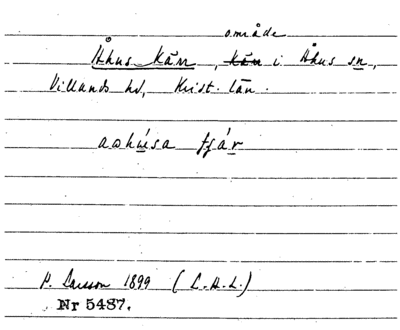 område
Åhus Kärr, kärr i Åhus sn,
Villands hd, Krist. län.
aohúsa
P. Larsson 1899 (L.H.L.)
Nr 5487.